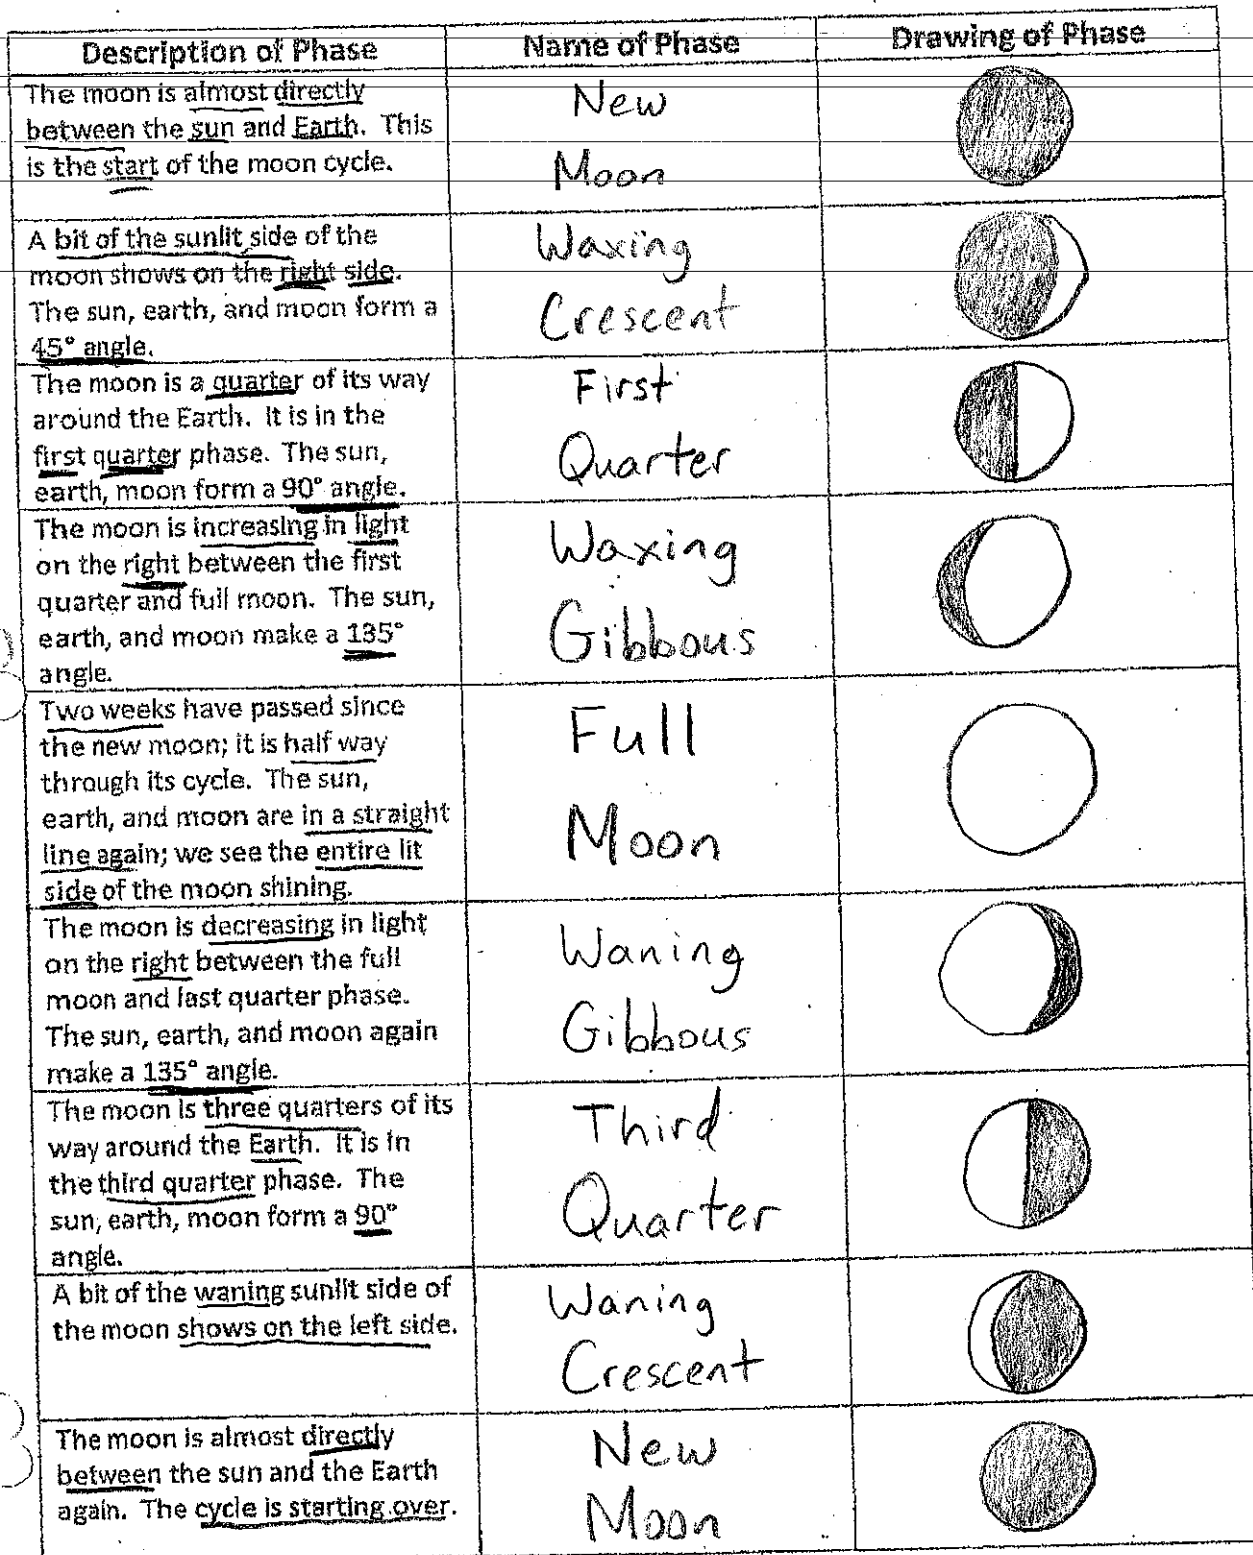 Description of Phase
Name of Phase
Drawing of Phase
The moon is almost directly
between the sun and Earth. This
is the start of the moon cycle.
New
Moon
A bit of the sunlit side of the
moon shows on the right side.
The sun, earth, and moon form a
45° angle.
Waxing
Crescent
The moon is a quarter of its way
around the Earth. It is in the
first quarter phase. The sun,
earth, moon form a 90° angle.
First
Quarter
The moon is increasing in light
on the right between the first
quarter and full moon. The sun,
earth, and moon make a 135°
angle.
Waxing
Gibbous
Two weeks have passed since
the new moon; it is half way
through its cycle. The sun,
earth, and moon are in a straight
line again; we see the entire lit
side of the moon shining.
Full
Moon
The moon is decreasing in light
on the right between the full
moon and last quarter phase.
The sun, earth, and moon again
make a 135° angle.
Waning
Gibbous
The moon is three quarters of its
way around the Earth. It is in
the third quarter phase. The
sun, earth, moon form a 90°
angle.
Third
Quarter
A bit of the waning sunlit side of
the moon shows on the left side.
Waning
Crescent
The moon is almost directly
between the sun and the Earth
again. The cycle is starting over.
New
Moon